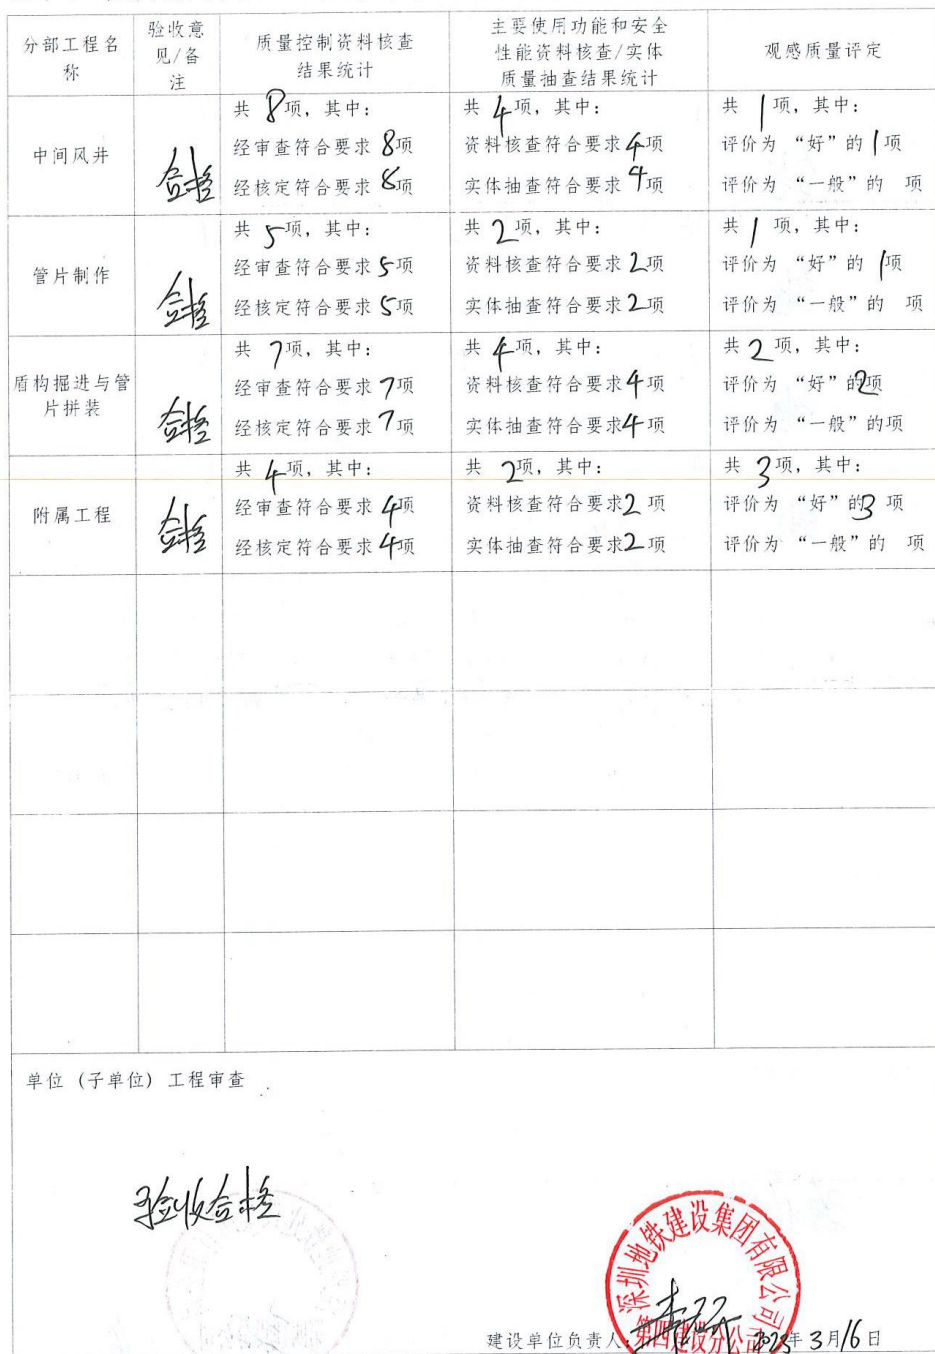 分部工程名
称
验收意
见/备
注
质量控制资料核查
结果统计
主要使用功能和安全
性能资料核查/实体
质量抽查结果统计
观感质量评定
中间风井
合格
共 8项，其中：
经审查符合要求 8项
经核定符合要求 8项
共 4项，其中：
资料核查符合要求 4项
实体抽查符合要求 4项
共 1项，其中：
评价为 “好”的 1项
评价为 “一般”的 项
管片制作
合格
共 5项，其中：
经审查符合要求 5项
经核定符合要求 5项
共 2项，其中：
资料核查符合要求 2项
实体抽查符合要求 2项
共 1 项，其中：
评价为 “好”的 1项
评价为 “一般”的 项
盾构掘进与管
片拼装
合格
共 7项，其中：
经审查符合要求 7项
经核定符合要求 7项
共 4项，其中：
资料核查符合要求 4项
实体抽查符合要求 4项
共 2项，其中：
评价为 “好”的2项
评价为 “一般”的项
附属工程
合格
共 4项，其中：
经审查符合要求 4项
经核定符合要求 4项
共 2项，其中：
资料核查符合要求2 项
实体抽查符合要求2 项
共 3项，其中：
评价为 “好”的3 项
评价为 “一般”的 项
单位（子单位）工程审查
验收合格
深圳地铁建设集团有限公司
第四建设分公司
建设单位负责人： 2023年 3月16日